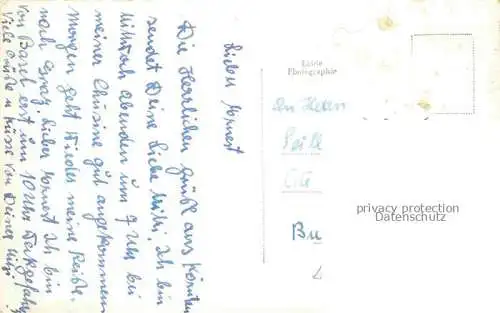 Lieber Ernest
Die Herzlichen Grüße aus Kärnten
sendet Deine Liebe Mitzi. Ich bin
Mittwoch abenden um 7 Uhr bei
meiner Chusine gut angekommen
morgen geht wieder meine Reise
nach Graz Lieber Ernest Ich bin
von Basel erst um 10 Uhr Fortgefahren
Viele Grüße u Küsse von Deiner Mitzi
Echte
Photographie
An Herrn
Bu
privacy protection
Datenschutz